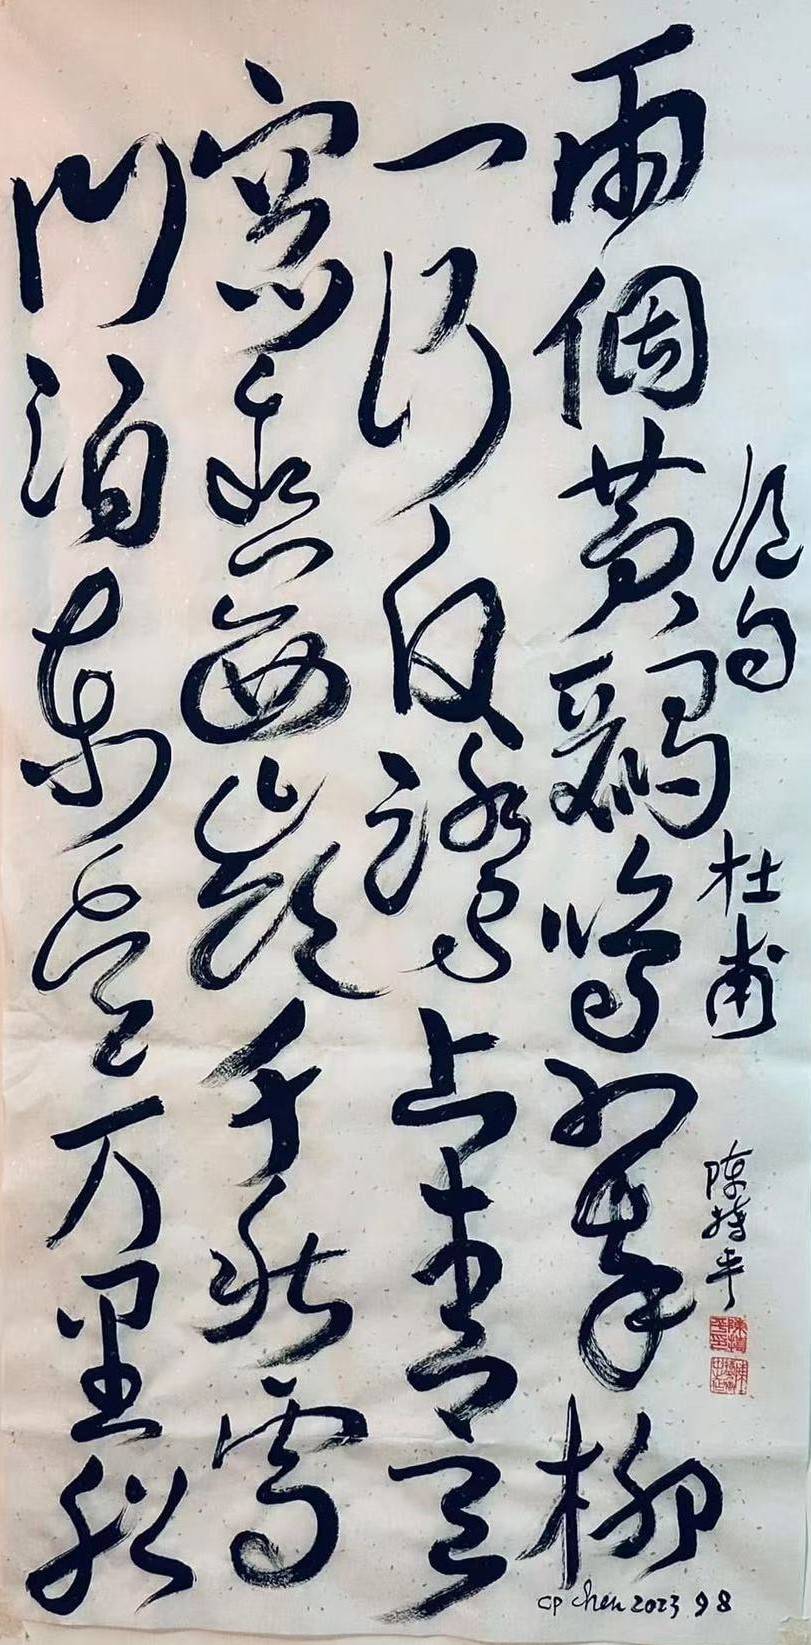 絕句 杜甫
陳持平
兩個黃鸝鳴翠柳
一行白鷺上青天
窗含西嶺千秋雪
門泊東吳万里船
CP Chen 2023 9 8